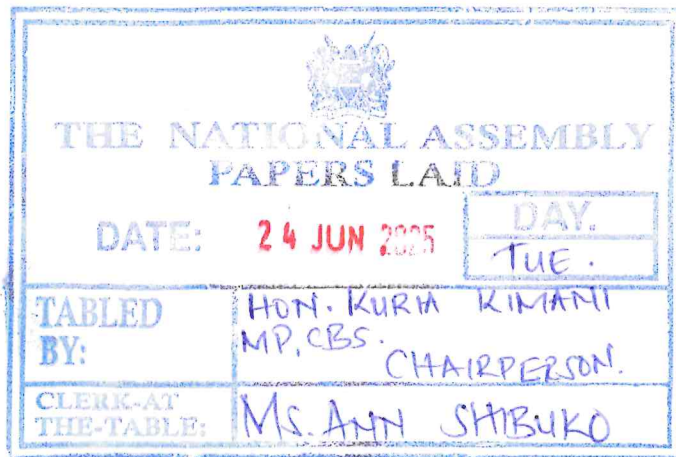 THE NATIONAL ASSEMBLY
PAPERS LAID
DATE: 24 JUN 2025 DAY.
TUE.
TABLED BY: HON. KURIA KIMANI
MP, CBS.
CHAIRPERSON.
CLERK-AT THE-TABLE: MS. ANN SHIBUKO